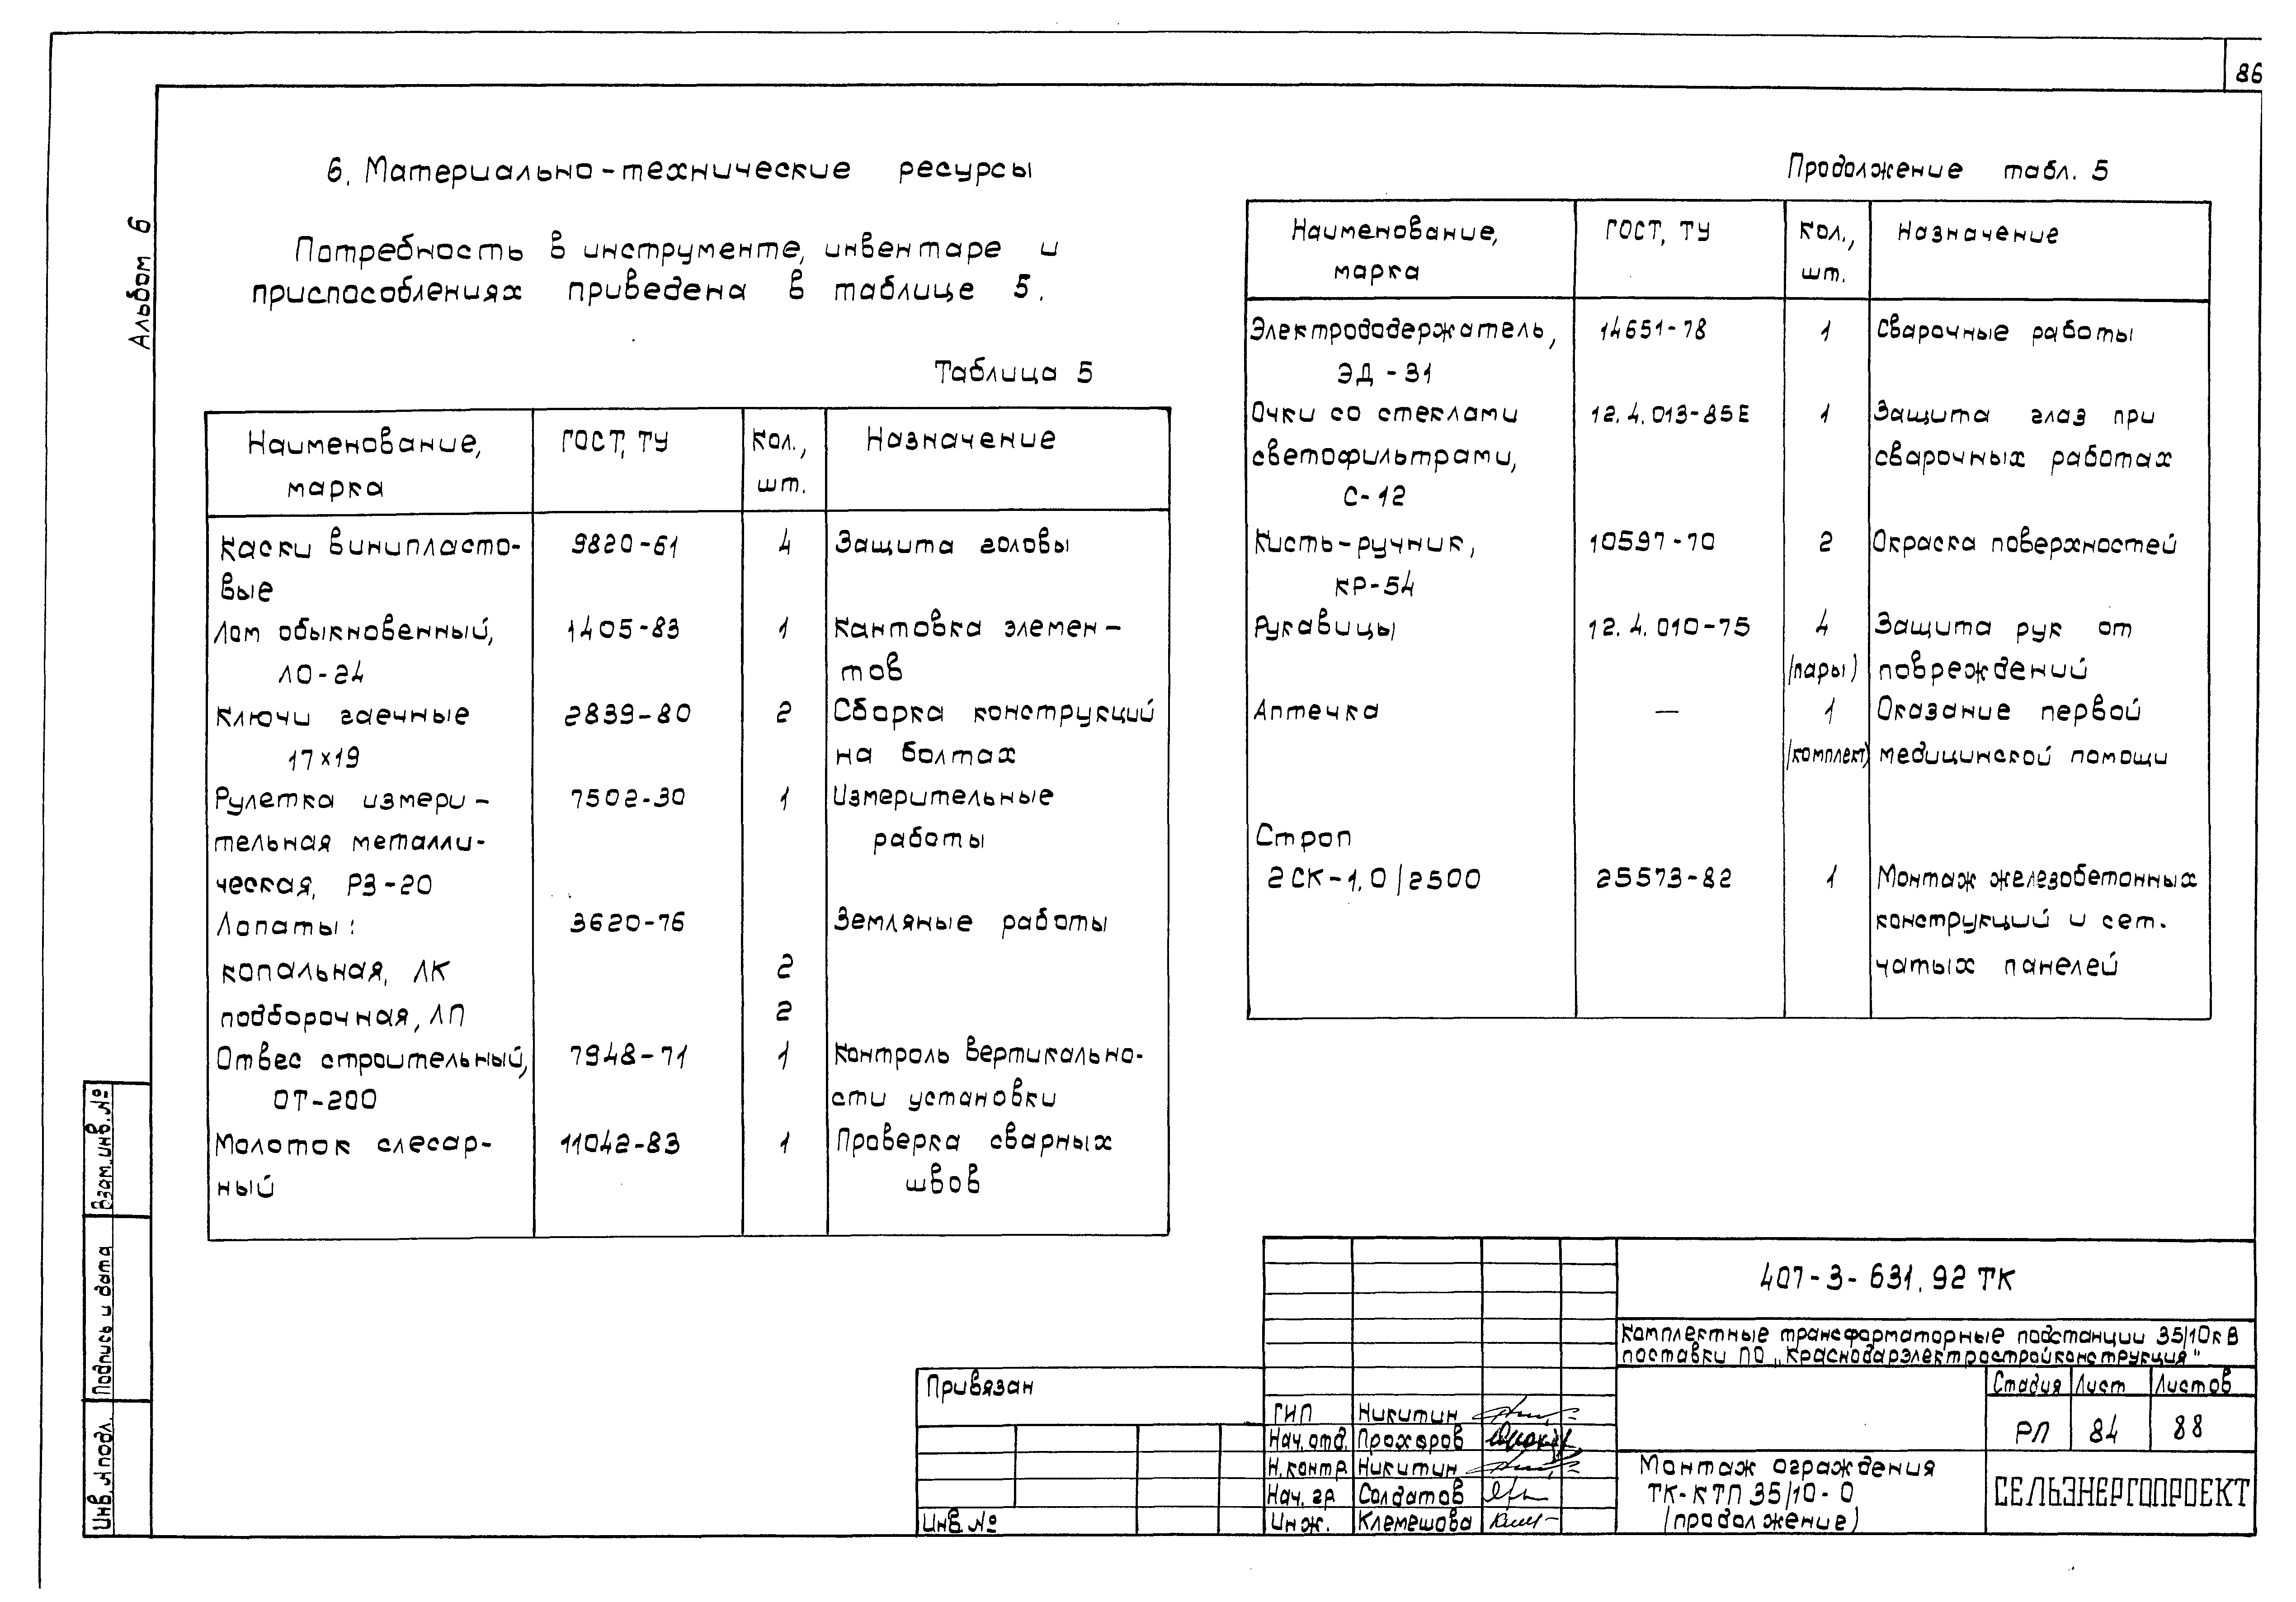 86
Альбом 6
6. Материально-технические ресурсы
Потребность в инструменте, инвентаре и
приспособлениях приведена в таблице 5.
Таблица 5
Наименование, марка | ГОСТ, ТУ | Кол., шт. | Назначение
Каски винипласто- 9820-61 4 Защита головы
вые
Лом обыкновенный, 1405-83 1 Кантовка элемен-
ЛО-24 тов
Ключи гаечные 2839-80 2 Сборка конструкций
17×19 на болтах
Рулетка измери- 7502-30 1 Измерительные
тельная металли- работы
ческая, РЗ-20
Лопаты: 3620-76 Земляные работы
копальная, ЛК 2
подборочная, ЛП 2
Отвес строительный, 7948-71 1 Контроль вертикально-
ОТ-200 сти установки
Молоток слесар- 11042-83 1 Проверка сварных
ный швов
Продолжение табл. 5
Наименование, марка | ГОСТ, ТУ | Кол., шт. | Назначение
Электрододержатель, 14651-78 1 Сварочные работы
ЭД-31
Очки со стеклами 12.4.013-85Е 1 Защита глаз при
светофильтрами, сварочных работах
С-12
Кисть-ручник, 10597-70 2 Окраска поверхностей
КР-54
Рукавицы 12.4.010-75 4 Защита рук от
/пары/ повреждений
Аптечка — 1 Оказание первой
/комплект/ медицинской помощи
Строп
2СК-1,0/2500 25573-82 1 Монтаж железобетонных
конструкций и сет.
чатых панелей
Взам. инв. №
Подпись и дата
Инв. № подл.
Привязан
Инв. №
ГИП Никитин
Нач. отд. Прохоров
Н. контр. Никитин
Нач. гр. Солдатов
Инж. Клемешова
407-3-631.92 ТК
Комплектные трансформаторные подстанции 35/10кВ
поставки ПО „Краснодарэлектростройконструкция"
Стадия Лист Листов
РЛ 84 88
Монтаж ограждения
ТК-КТП 35/10-0
/продолжение/
СЕЛЬЭНЕРГОПРОЕКТ